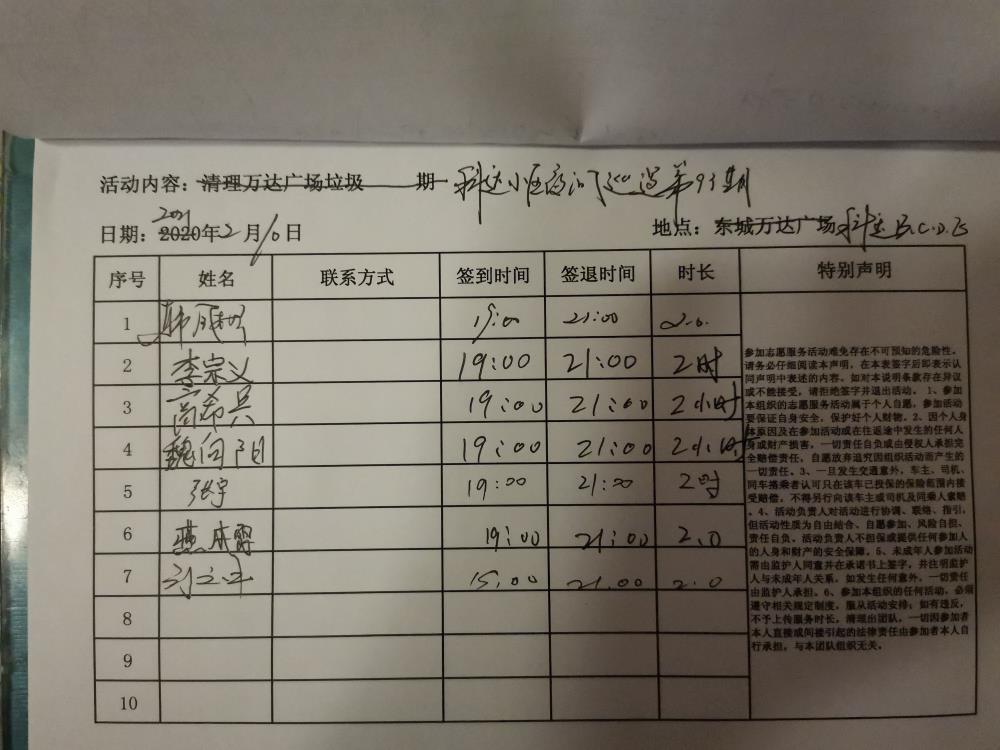 活动内容: 清理万达广场垃圾 期 科达小区 门巡逻第93期
日期: 2020年2月10日
2021
地点: 东城万达广场科达B.C.D.E
序号 姓名 联系方式 签到时间 签退时间 时长 特别声明
1 19:00 21:00 2.0
2 李宗义 19:00 21:00 2时
3 高希兵 19:00 21:00 2小时
4 魏向阳 19:00 21:00 2小时
5 张宇 19:00 21:00 2时
6 19:00 21:00 2.0
7 21.00 2.0
8
9
10
参加志愿服务活动难免存在不可预知的危险性。
请务必仔细阅读本声明，在本表签字后即表示认
同声明中表述的内容。如对本说明条款存在异议
或不能接受，请拒绝签字并退出活动。 1、参加
本组织的志愿服务活动属于个人自愿，参加活动
要保证自身安全，保护好个人财物。2、因个人身
体原因及在参加活动或在往返途中发生的任何人
身或财产损害，一切责任自负或由侵权人承担完
全赔偿责任，自愿放弃追究因组织活动而产生的
一切责任。3、一旦发生交通意外，车主、司机、
同车搭乘者认可只在该车已投保的保险范围内接
受赔偿，不得另行向该车主或司机及同乘人索赔
。4、活动负责人对活动进行协调、联络、指引，
但活动性质为自由结合、自愿参加、风险自担、
责任自负，活动负责人不担保或提供任何参加人
的人身和财产的安全保障。5、未成年人参加活动
需由监护人同意并在承诺书上签字，并注明监护
人与未成年人关系，如发生任何意外，一切责任
由监护人承担。6、参加本组织的任何活动，必须
遵守相关规定制度，服从活动安排；如有违反，
不予上传服务时长，清理出团队，一切因参加者
本人直接或间接引起的法律责任由参加者本人自
行承担，与本团队组织无关。